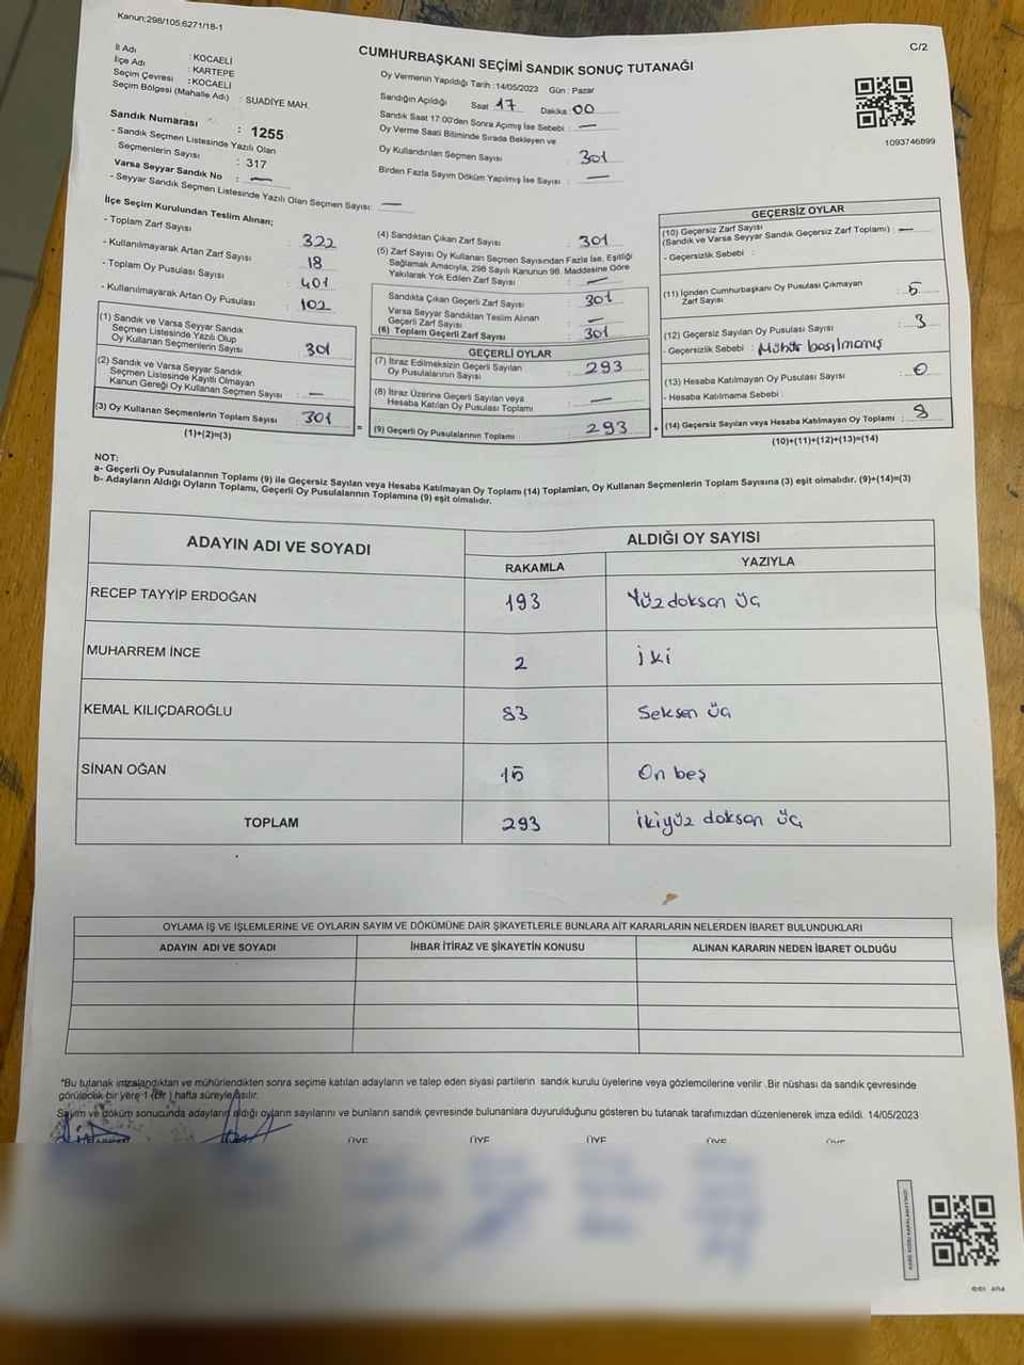 Kanun:298/105,6271/18-1
C/2
CUMHURBAŞKANI SEÇİMİ SANDIK SONUÇ TUTANAĞI
İl Adı : KOCAELİ
İlçe Adı : KARTEPE
Seçim Çevresi : KOCAELİ
Seçim Bölgesi (Mahalle Adı) : SUADİYE MAH.
Sandık Numarası : 1255
- Sandık Seçmen Listesinde Yazılı Olan
Seçmenlerin Sayısı : 317
Varsa Seyyar Sandık No : —
- Seyyar Sandık Seçmen Listesinde Yazılı Olan Seçmen Sayısı: —
Oy Vermenin Yapıldığı Tarih :14/05/2023 Gün : Pazar
Sandığın Açıldığı Saat 17 Dakika : 00
Sandık Saat 17:00'den Sonra Açımış İse Sebebi : —
Oy Verme Saati Bitiminde Sırada Bekleyen ve
Oy Kullandırılan Seçmen Sayısı : 301
Birden Fazla Sayım Döküm Yapılmış İse Sayısı : —
1093746899
İlçe Seçim Kurulundan Teslim Alınan;
- Toplam Zarf Sayısı : 322
- Kullanılmayarak Artan Zarf Sayısı : 18
- Toplam Oy Pusulası Sayısı : 401
- Kullanılmayarak Artan Oy Pusulası : 102
(1) Sandık ve Varsa Seyyar Sandık
Seçmen Listesinde Yazılı Olup
Oy Kullanan Seçmenlerin Sayısı : 301
(2) Sandık ve Varsa Seyyar Sandık
Seçmen Listesinde Kayıtlı Olmayan
Kanun Gereği Oy Kullanan Seçmen Sayısı : —
(3) Oy Kullanan Seçmenlerin Toplam Sayısı : 301
(1)+(2)=(3)
(4) Sandıktan Çıkan Zarf Sayısı : 301
(5) Zarf Sayısı Oy Kullanan Seçmen Sayısından Fazla İse, Eşitliği
Sağlamak Amacıyla, 298 Sayılı Kanunun 98. Maddesine Göre
Yakılarak Yok Edilen Zarf Sayısı : —
Sandıkta Çıkan Geçerli Zarf Sayısı : 301
Varsa Seyyar Sandıktan Teslim Alınan
Geçerli Zarf Sayısı : —
(6) Toplam Geçerli Zarf Sayısı : 301
GEÇERLİ OYLAR
(7) İtiraz Edilmeksizin Geçerli Sayılan
Oy Pusulalarının Sayısı : 293
(8) İtiraz Üzerine Geçerli Sayılan veya
Hesaba Katılan Oy Pusulası Toplamı : —
(9) Geçerli Oy Pusulalarının Toplamı : 293
GEÇERSİZ OYLAR
(10) Geçersiz Zarf Sayısı
(Sandık ve Varsa Seyyar Sandık Geçersiz Zarf Toplamı) : —
- Geçersizlik Sebebi :
(11) İçinden Cumhurbaşkanı Oy Pusulası Çıkmayan
Zarf Sayısı : 5
(12) Geçersiz Sayılan Oy Pusulası Sayısı : 3
- Geçersizlik Sebebi : Mühür basılmamış
(13) Hesaba Katılmayan Oy Pusulası Sayısı : 0
- Hesaba Katılmama Sebebi :
(14) Geçersiz Sayılan veya Hesaba Katılmayan Oy Toplamı : 8
(10)+(11)+(12)+(13)=(14)
NOT:
a- Geçerli Oy Pusulalarının Toplamı (9) ile Geçersiz Sayılan veya Hesaba Katılmayan Oy Toplamı (14) Toplamları, Oy Kullanan Seçmenlerin Toplam Sayısına (3) eşit olmalıdır. (9)+(14)=(3)
b- Adayların Aldığı Oyların Toplamı, Geçerli Oy Pusulalarının Toplamına (9) eşit olmalıdır.
ADAYIN ADI VE SOYADI ALDIĞI OY SAYISI
RAKAMLA YAZIYLA
RECEP TAYYİP ERDOĞAN 193 Yüz doksan üç
MUHARREM İNCE 2 İki
KEMAL KILIÇDAROĞLU 83 Seksen üç
SİNAN OĞAN 15 On beş
TOPLAM 293 İkiyüz doksan üç
OYLAMA İŞ VE İŞLEMLERİNE VE OYLARIN SAYIM VE DÖKÜMÜNE DAİR ŞİKAYETLERLE BUNLARA AİT KARARLARIN NELERDEN İBARET BULUNDUKLARI
ADAYIN ADI VE SOYADI İHBAR İTİRAZ VE ŞİKAYETİN KONUSU ALINAN KARARIN NEDEN İBARET OLDUĞU
*Bu tutanak imzalandıktan ve mühürlendikten sonra seçime katılan adayların ve talep eden siyasi partilerin sandık kurulu üyelerine veya gözlemcilerine verilir .Bir nüshası da sandık çevresinde
görülecek bir yere 1 (bir ) hafta süreyle asılır.
Sayım ve döküm sonucunda adayların aldığı oyların sayılarını ve bunların sandık çevresinde bulunanlara duyurulduğunu gösteren bu tutanak tarafımızdan düzenlenerek imza edildi. 14/05/2023
ÜYE ÜYE ÜYE ÜYE ÜYE